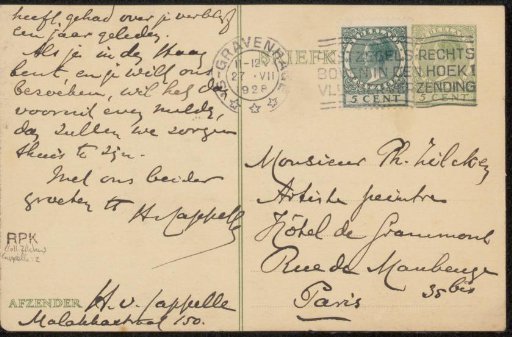 heeft gehad over je verblijf
een jaar geleden.
Als je in den Haag
bent en je wilt ons
bezoeken, wil het dan
vooruit even melden,
dan zullen we zorgen
thuis te zijn.
Met ons beider
groeten tt
H v Cappelle
RPK
AFZENDER H. v. Cappelle
Malakkastraat 150.
'S-GRAVENHAGE
11-12
27 · VII
1928
BRIEFK
NEDERLAND
5 CENT
5 CENT
POSTZEGELS RECHTS
BOVEN IN DEN HOEK!
ZENDING
Monsieur Ph. Zilcken
Artiste peintre
Hôtel de Grammont
Rue de Maubeuge
35 bis
Paris